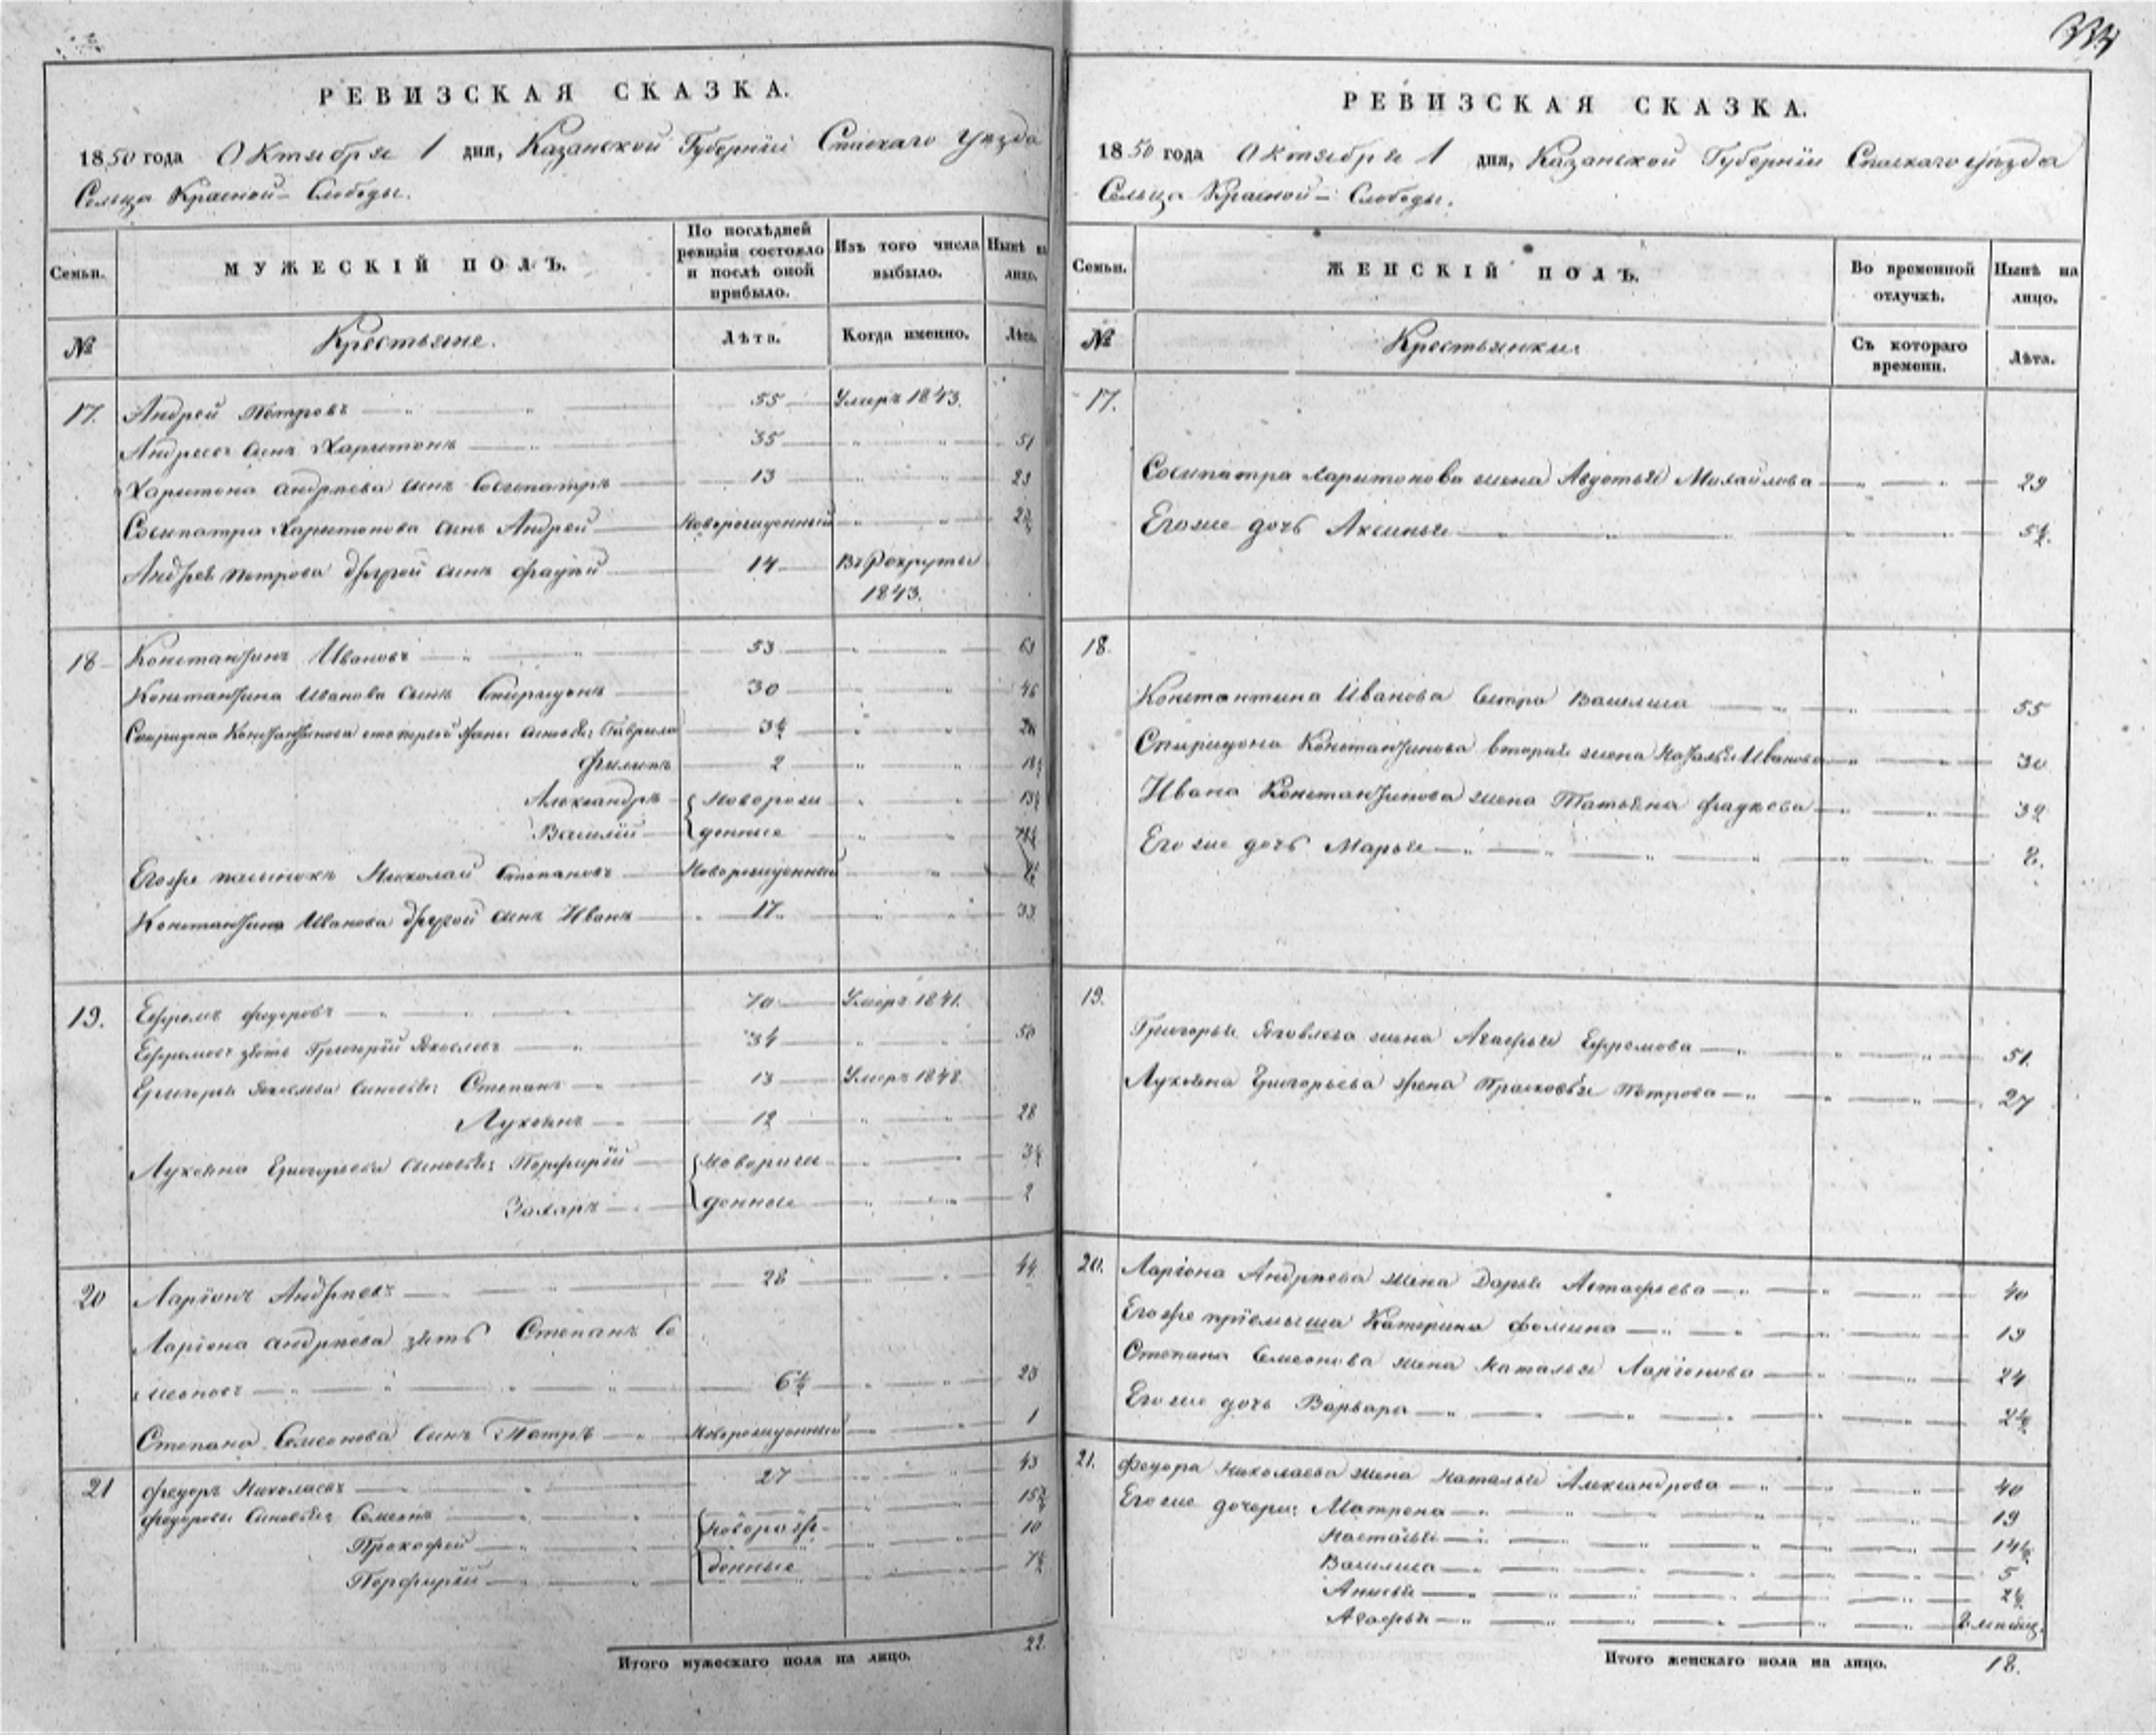 РЕВИЗСКАЯ СКАЗКА.
1850 года Октября 1 дня, Казанской Губернїи Спаскаго Уѣзда
Сельца Красной- Слободы.
Семьи.
МУЖЕСКІЙ ПОЛЪ.
По послѣдней ревизіи состояло и послѣ оной прибыло.
Изъ того числа выбыло.
Нынѣ на лицо.
№
Крестьяне.
Лѣта.
Когда именно.
Лѣта.
17. Андрей Петровъ 55 Умеръ 1843.
Андреевъ сынъ Харитонъ 35 51
Харитона Андрѣева сынъ Сосипатръ 13 29
Сосипатра Харитонова сынъ Андрей Новорожденный
Андрея Петрова другой сынъ Фадѣй 14 Въ Рекруты
1843.
18 Константинъ Ивановъ 53 69
Константина Иванова сынъ Спиридонъ 30 46
Спиридона Константинова отъ первой жены сыновья: Гаврила 3½
Филипъ 2 18
Александръ Новорож
Василїй денные
Егоже пасынокъ Николай Степановъ Новорожденный
Константина Иванова другой сынъ Иванъ 17 33
19. Ефремъ Федоровъ 70 Умеръ 1841.
Ефремовъ зять Григорїй Яковлевъ 34 50
Григорья Яковлева сыновья: Степанъ 13 Умеръ 1848.
Лукоянъ 12 28
Лукояна Григорьева сыновья: Порфирїй Новорож 3½
Захаръ денные 2
20 Ларїонъ Андрѣевъ 28 44
Ларїона Андрѣева зять Степанъ Се
меновъ 6½ 23
Степана Семенова сынъ Петръ Новорожденный 1
21 Федоръ Николаевъ 27 43
Федоровы сыновья: Семенъ Новорож- 15½
Прокофей денные 10
Порфирїй 7½
Итого мужескаго пола на лицо. 22.
334
РЕВИЗСКАЯ СКАЗКА.
1850 года Октября 1 дня, Казанской Губернїи Спаскаго уѣзда
Сельца Красной- Слободы.
Семьи.
ЖЕНСКІЙ ПОЛЪ.
Во временной отлучкѣ.
Нынѣ на лицо.
№
Крестьянки.
Съ котораго времени.
Лѣта.
17.
Сосипатра Харитонова жена Авдотья Михайлова 29
Его же дочь Аксинья 5½.
18.
Константина Иванова сестра Василиса 55
Спиридона Константинова вторая жена Наталья Иванова 30
Ивана Константинова жена Татьяна Фадѣева 32
Его же дочь Марья 8.
19.
Григорья Яковлева жена Агафья Ефремова 51.
Лукояна Григорьева жена Прасковья Петрова 27
20. Ларїона Андрѣева жена Дарья Астафьева 40
Егоже прїемыша Катерина Фомина 19
Степана Семенова жена Наталья Ларїонова 24
Его же дочь Варвара 2½.
21. Федора Николаева жена Наталья Александрова 40
Его же дочери: Матрена 19
Настасья 14½
Василиса 5
Анисья 2½
Агафья 8 месяц.
Итого женскаго пола на лицо. 18.